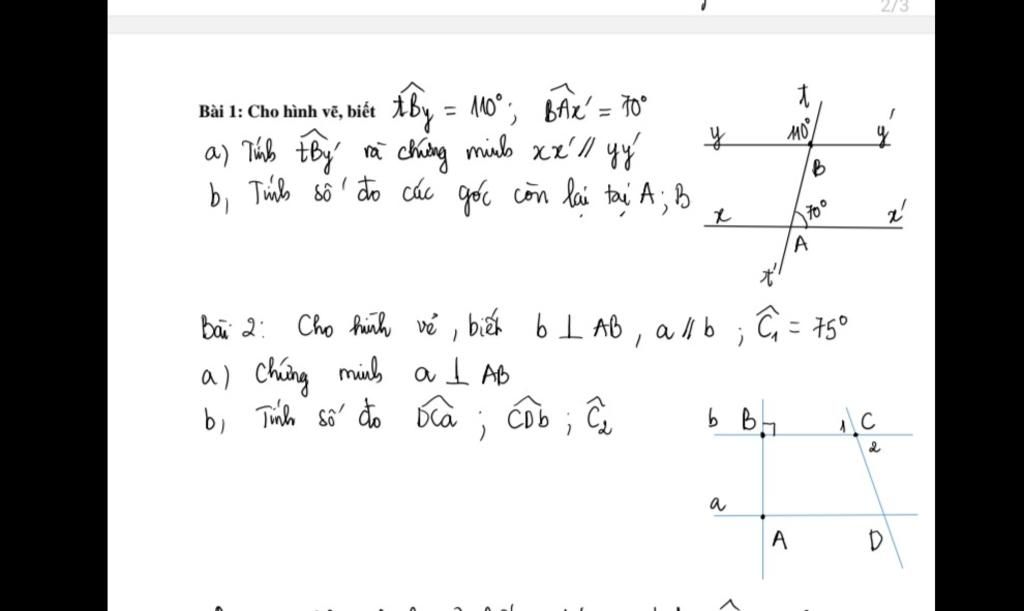 2/3
Bài 1: Cho hình vẽ, biết tBy = 110°; BAx' = 70°
a) Tính tBy' rà chứng minh xx' // yy'
b, Tính số đo các góc còn lại tại A; B
t
y 110° y'
B
x 70° x'
A
t'
Bài 2: Cho hình vẽ, biết b ⊥ AB, a // b; Ĉ₁ = 75°
a) Chứng minh a ⊥ AB
b, Tính số đo DCa; CDb; Ĉ₂
b B 1 C
2
a
A D